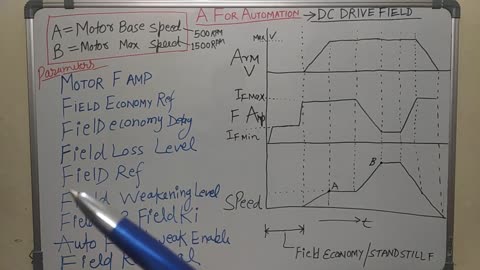 A FOR AUTOMATION → DC DRIVE FIELD
A = Motor Base speed - 500 RPM
B = Motor Max speed - 1500 RPM
Parameters
MOTOR F AMP
FIELD ECONOMY Ref
FIELD economy Delay
Field Loss Level
FielD Ref
Weakening Level
Field Ki
Auto weak Enable
Field
Max V
ARM V
IF Max
F Amp
IF Min
B
A
SPEED
t
Field ECONOMY/STANDSTILL F